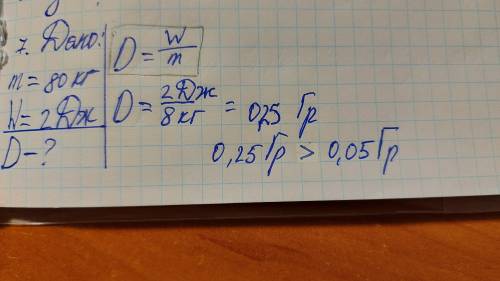 7. Дано:
m = 80 кг
W = 2 Дж
D - ?
D = W/m
D = 2 Дж / 8 кг = 0,25 Гр
0,25 Гр > 0,05 Гр